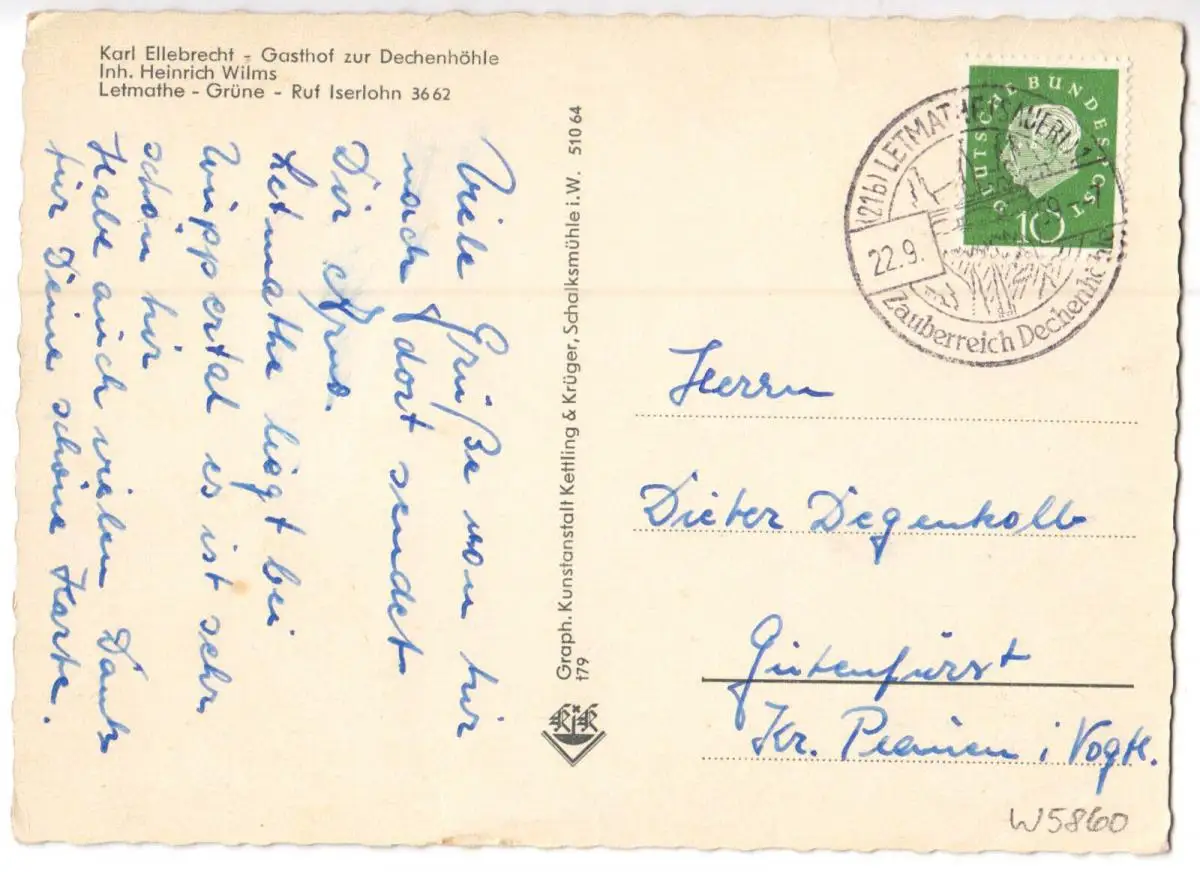 Karl Ellebrecht - Gasthof zur Dechenhöhle
Inh. Heinrich Wilms
Letmathe - Grüne - Ruf Iserlohn 3662
Viele Grüße von hir
nach dort sendet
Dir Arno.
Letmathe liegt bei
Wuppertal es ist sehr
schön hir
Habe auch vielen Dank
für Deine schöne Karte.
Graph. Kunstanstalt Kettling & Krüger, Schalksmühle i.W. 51064
t79
K&K
DEUTSCHE BUNDESPOST
10
(21b) LETMATHE (SAUERL)
22.9.
Zauberreich Dechenhöhle
Herrn
Dieter Degenkolb
Gutenfürst
Kr. Plauen i Vogtl.
W5860